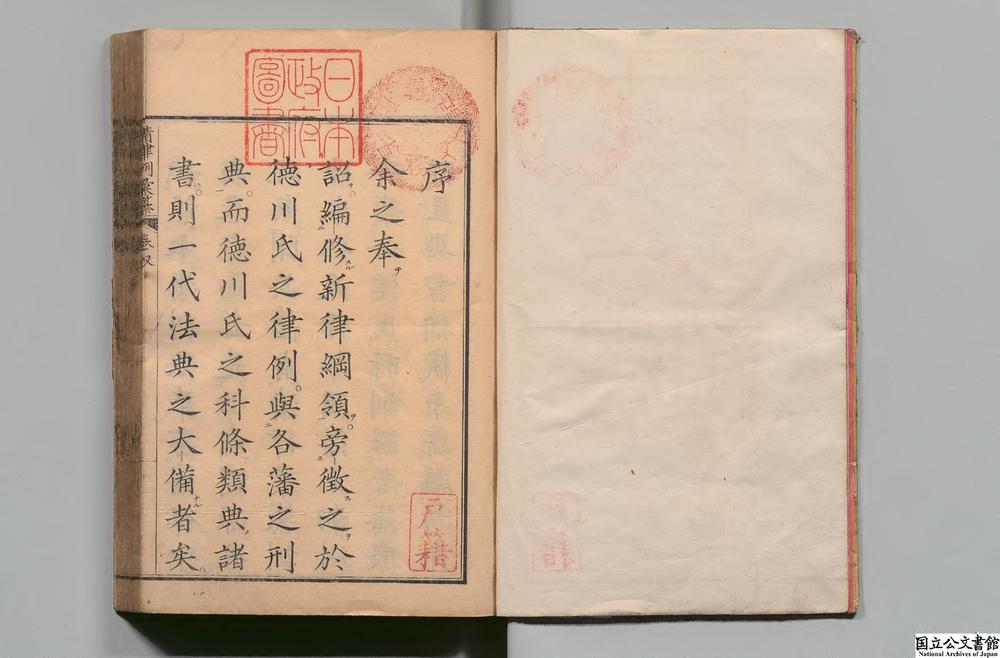 序
余之奉
詔。編修新律綱領。旁徵之於
徳川氏之律例。與各藩之刑
典。而徳川氏之科條類典諸
書。則一代法典之大備者矣。
日本
政府
圖書
戸籍
国立公文書館
National Archives of Japan